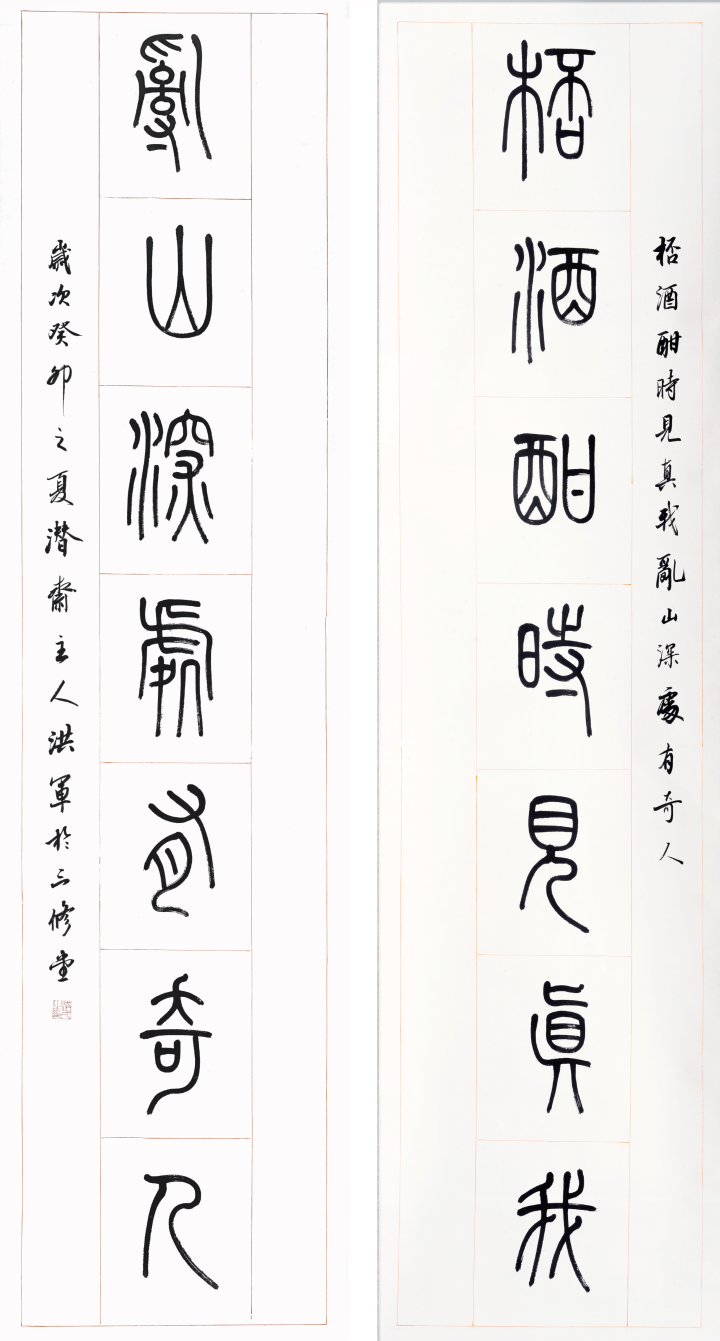 桮酒酣時見真我亂山深處有奇人
桮酒酣時見眞我
亂山深處有奇人
歲次癸卯之夏潛齋主人洪軍於三修堂